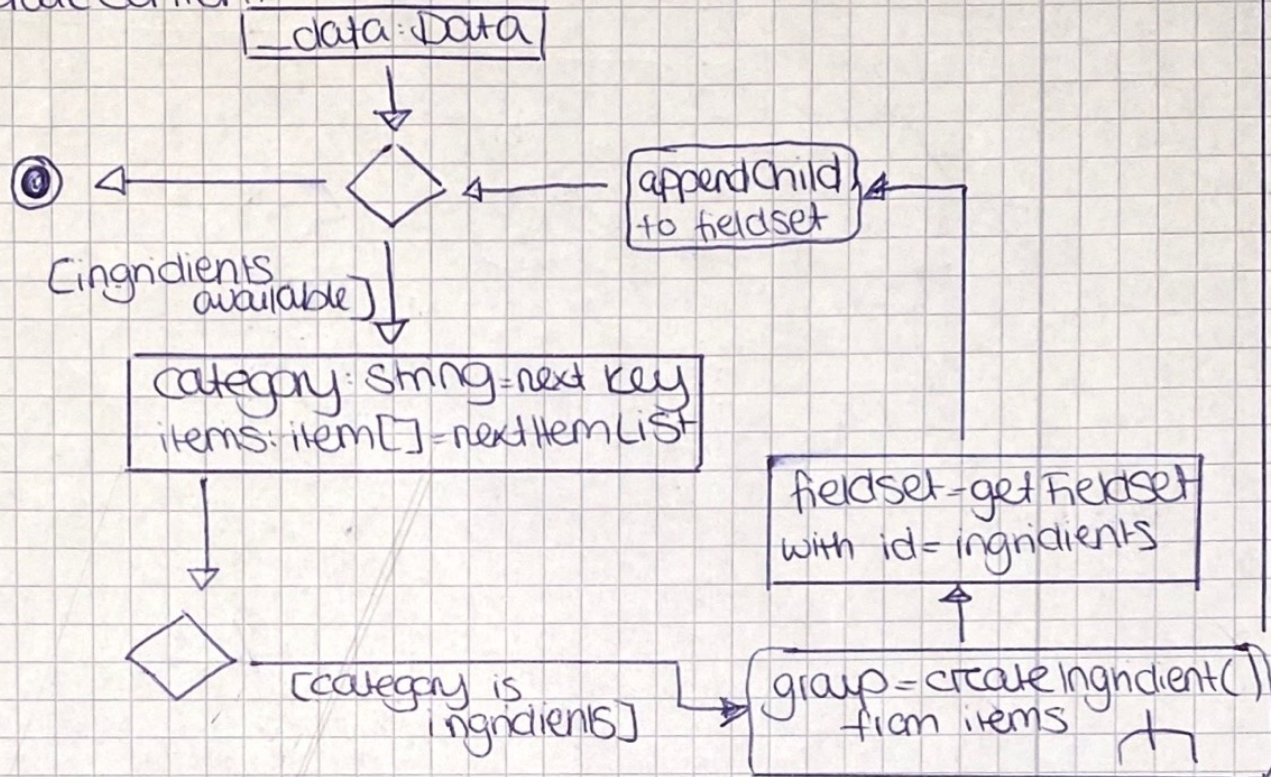 _data: Data
appendChild
to fieldset
[ingridients
available]
category: String = next key
items: item[] = nextItemList
fieldset = getFieldset
with id = ingridients
[category is
ingridients]
group = createIngridient()
from items